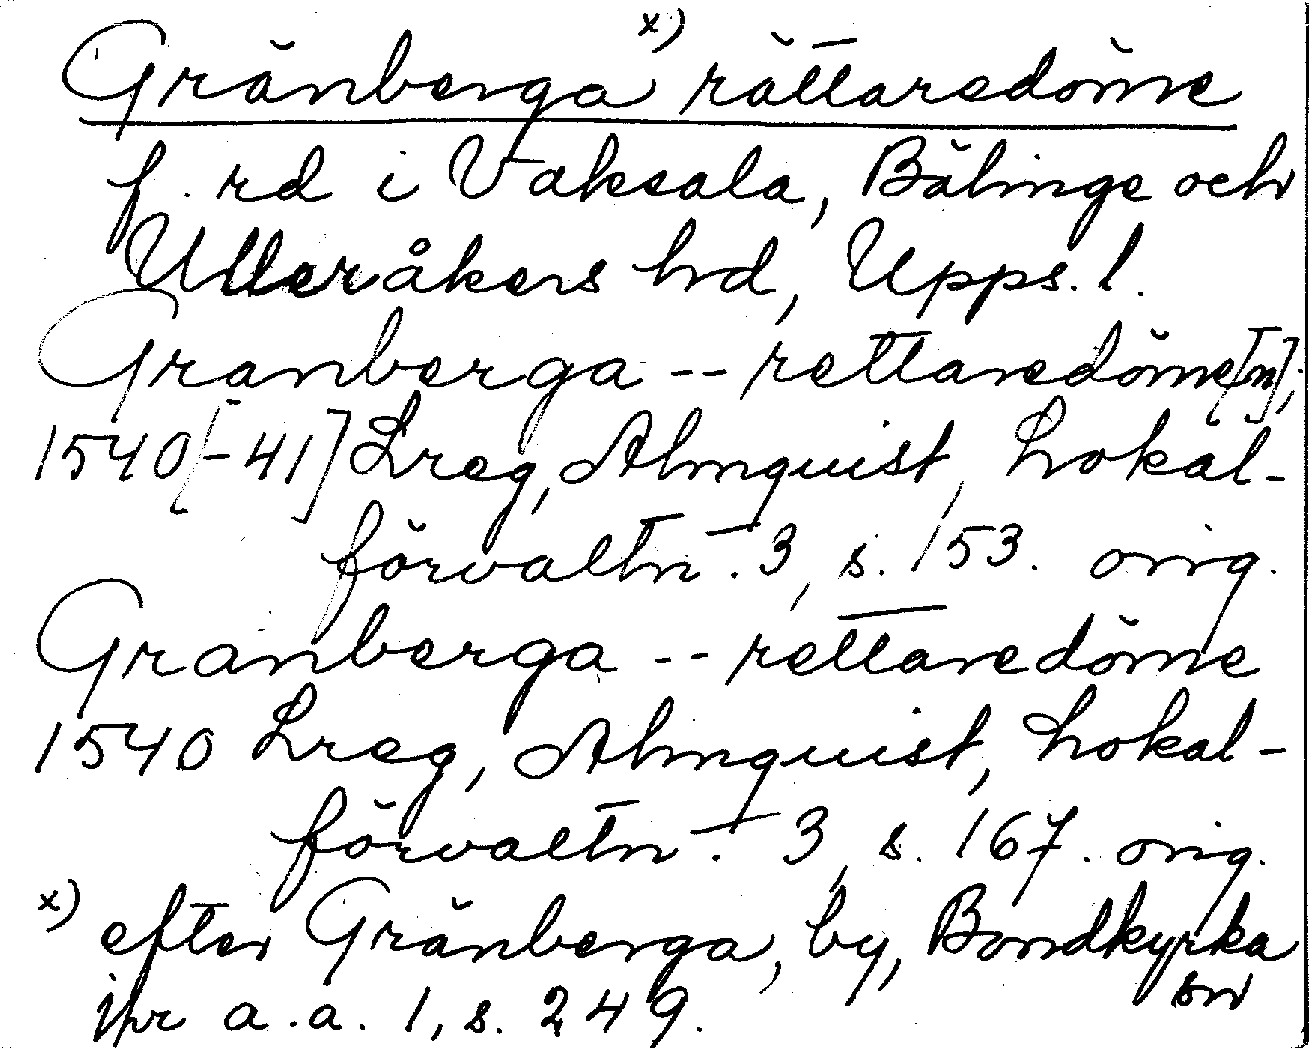 Gränberga x) rättaredöme
f. rd i Vaksala, Bälinge och
Ulleråkers hd, Upps. l.
Granberga -- rettaredöme[n],
1540[-41] Lreg, Almquist, Lokal-
förvaltn. 3, s. 153. orig.
Granberga -- rettaredöme
1540 Lreg, Almquist, Lokal-
förvaltn. 3, s. 167. orig.
x) efter Gränberga, by, Bondkyrka
sn
jfr a.a. 1, s. 249.